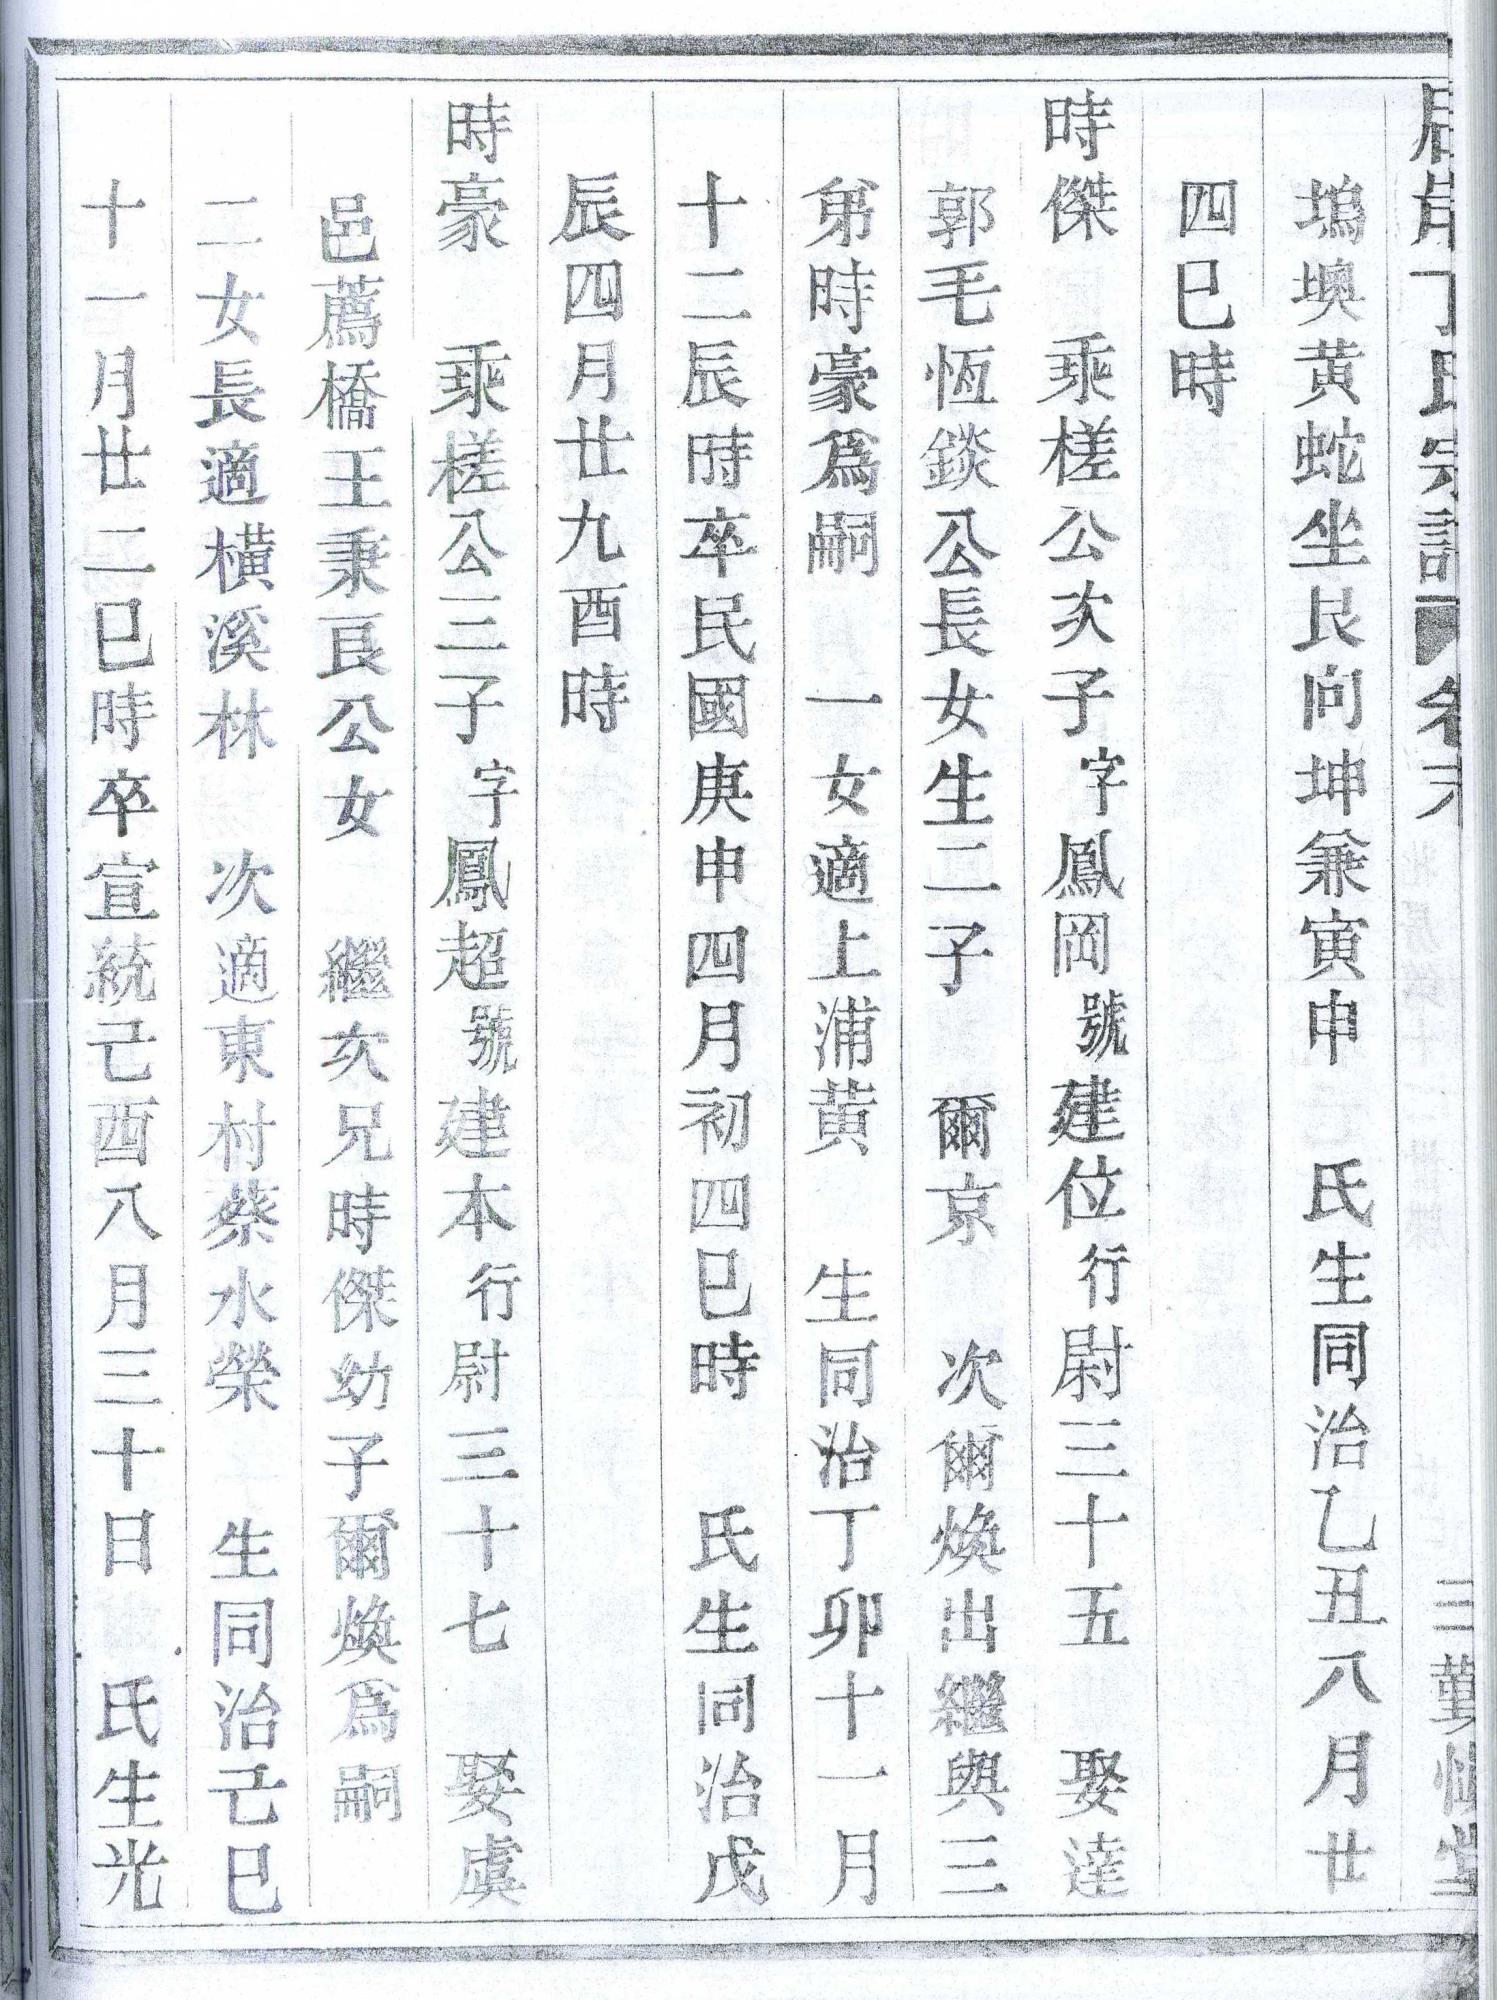 丁氏宗譜 卷末 三 堂
塢墺黄蛇坐艮向坤兼寅申 氏生同治乙丑八月廿
四巳時
時傑 乘槎公次子字鳳岡號建位行尉三十五 娶達
郭毛恆錟公長女生二子 爾京 次爾煥出繼與三
弟時豪爲嗣 一女適上浦黄 生同治丁卯十一月
十二辰時卒民國庚申四月初四巳時 氏生同治戊
辰四月廿九酉時
時豪 乘槎公三子字鳳超號建本行尉三十七 娶虞
邑薦橋王秉良公女 繼次兄時傑幼子爾煥爲嗣
二女長適橫溪林 次適東村蔡水榮 生同治己巳
十一月廿二巳時卒宣統己酉八月三十日 氏生光